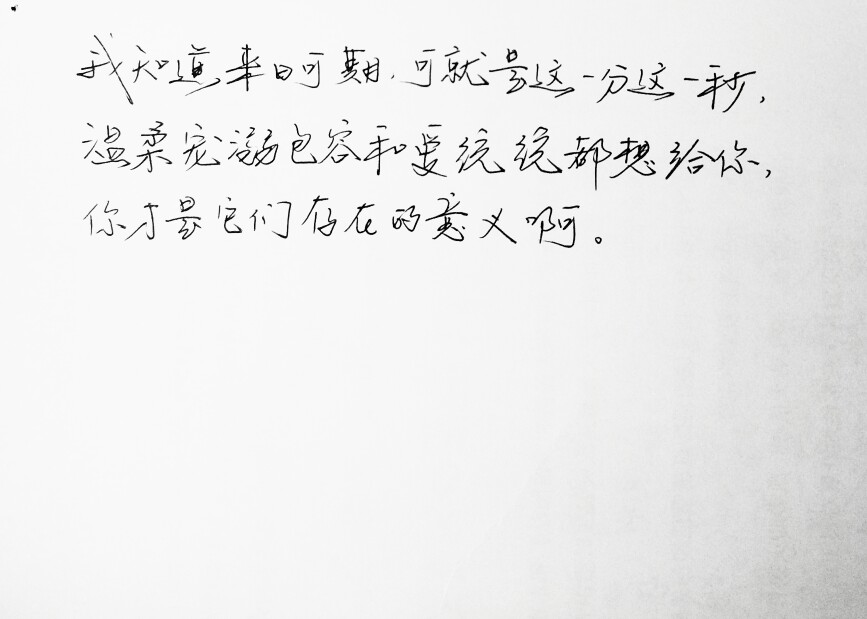 我知道来日可期,可就是这一分这一秒,
温柔宠溺包容和爱统统都想给你,
你才是它们存在的意义啊。